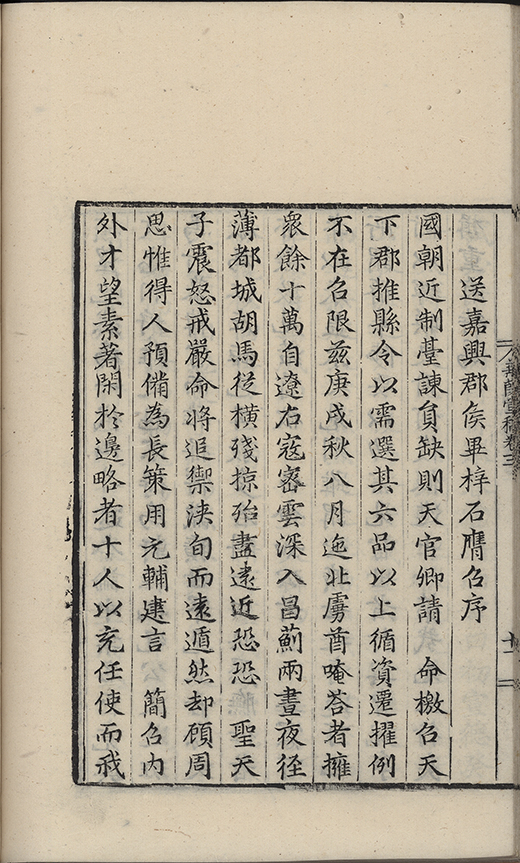 送嘉興郡侯畢梓石膺召序
國朝近制臺諫負缺則天官卿請 命檄召天
下郡推縣令以需選其六品以上循資遷擢例
不在召限兹庚戌秋八月迤北虜酋唵荅者擁
衆餘十萬自遼右寇密雲深入昌薊兩晝夜径
薄都城胡馬從横殘掠殆盡逺近恐恐 聖天
子震怒戒嚴命將追禦浹旬而逺遁然却顧周
思惟得人預備為長策用元輔建言 簡召内
外才望素著閑扵邊略者十人以充任使而我